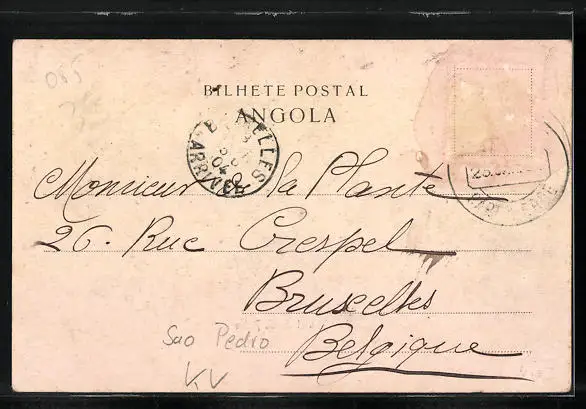 BILHETE POSTAL
ANGOLA
Monsieur de la Plante
26. Rue Crespel
Bruxelles
Belgique
Sao Pedro
KV